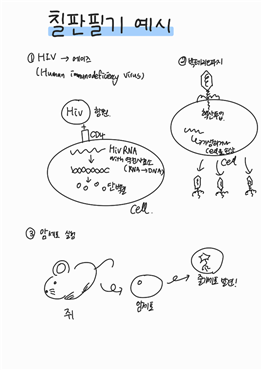 칠판필기 예시
① HIV → 에이즈
(Human immunodeficiency virus)
Hiv 항원
CD4
Hiv RNA
with 역전사효소
(RNA→DNA)
단백질
Cell
② 박테리오파지
핵산주입
cell
③ 암세포 실험
쥐
암세포
줄기세포 발견!